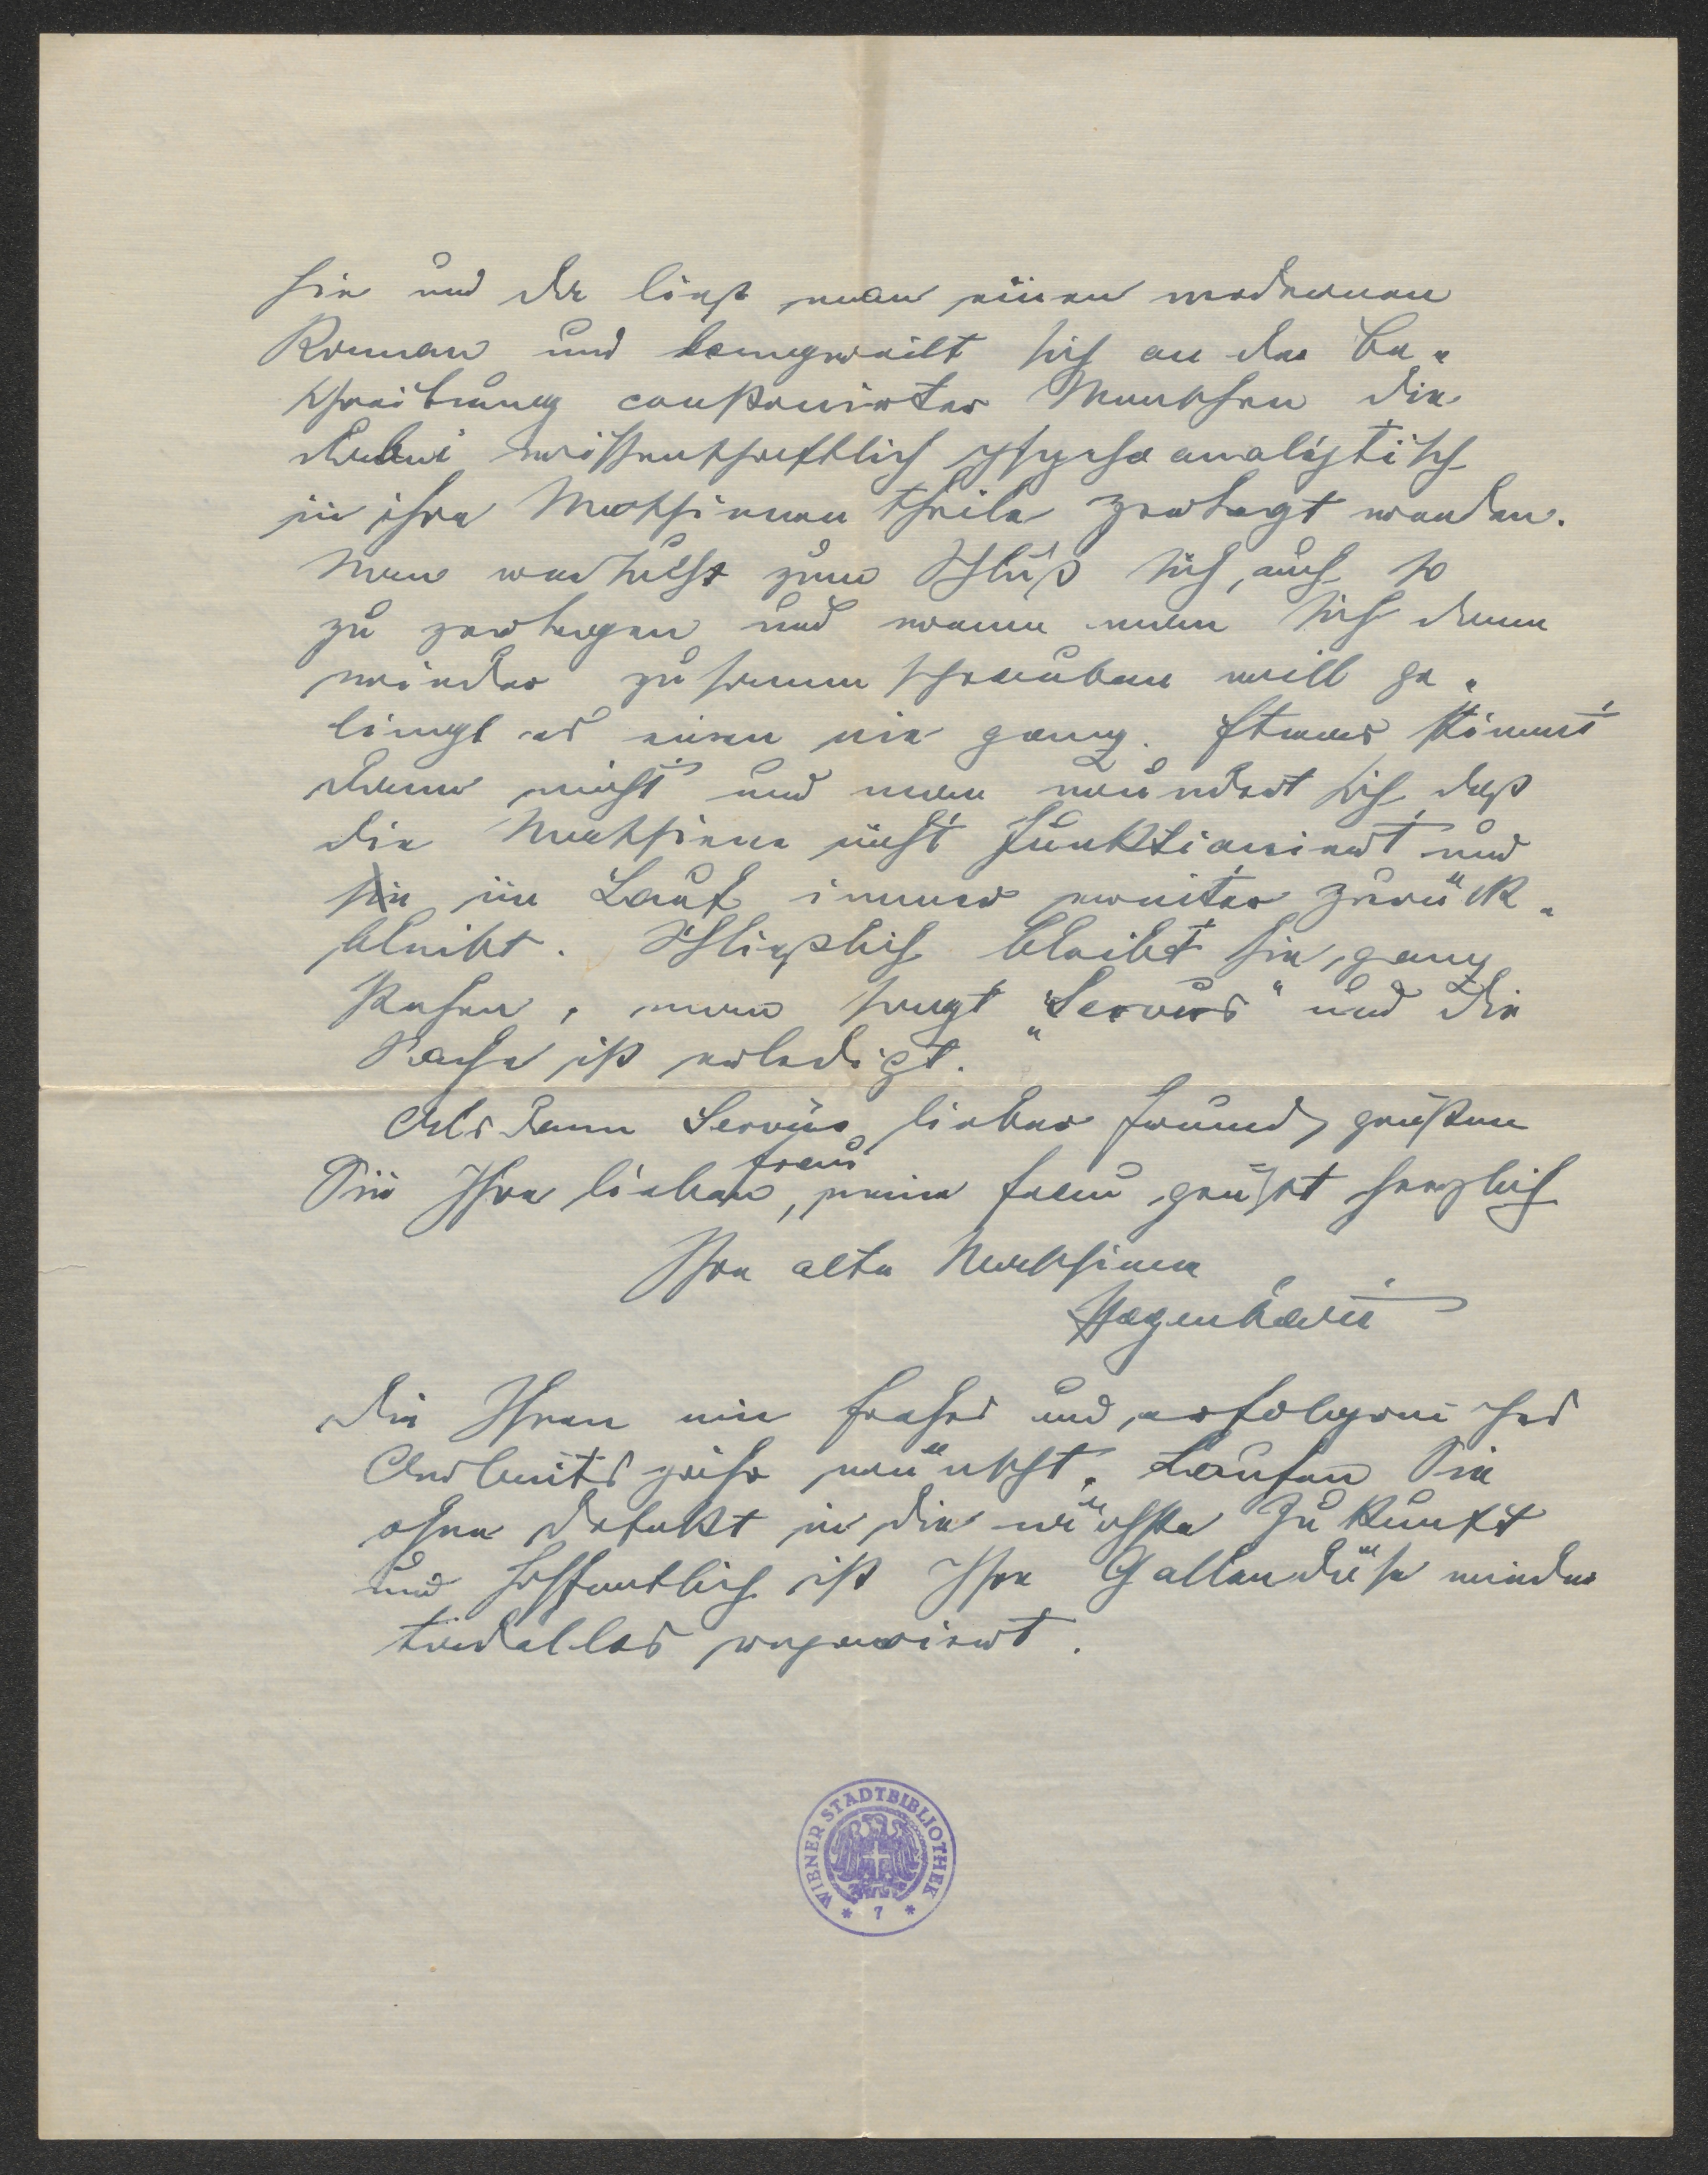 hie und da liest man einen modernen
Roman und langweilt sich an der Be-
schreibung constrwirter Menschen die
dabei wissenschaftlich psychoanalÿtisch
in ihre Maschinen theile zerlegt werden.
Man versucht zum Schluß sich, auch so
zu zerlegen und wenn man sich dann
wieder zusammen schrauben will ge-
lingt es einem nie ganz. Etwas stimmt
dann nicht und man wundert sich daß
die Maschine nicht funktioniert und
im Lauf immer weiter zurück-
bleibt. Schließlich bleibt sie ganz
stehen, man sagt „Servus“ und die
Sache ist erledigt.
Als dann Servus lieber Freund, grüßen
Sie Ihre liebe Frau, meine Frau grüßt herzlich
Ihre alte Maschine
Hagenbavie
die Ihnen ein frohes und erfolgreiches
Arbeitsjahr wünscht. Laufen Sie
ohne Defekt in die nächste Zukunft
und hoffentlich ist Ihre Gallendüse wieder
tadellos repariert.
WIENER STADTBIBLIOTHEK
* 7 *